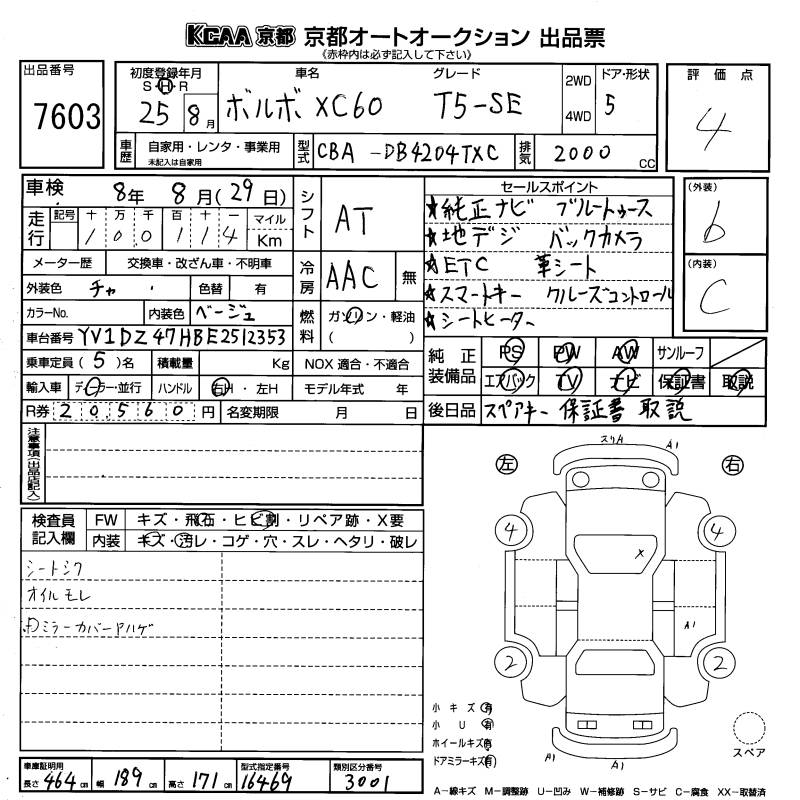 KCAA 京都 京都オートオークション 出品票
《赤枠内は必ず記入して下さい》
出品番号
7603
初度登録年月
S・H・R
25 8月
車名
ボルボ XC60
グレード
T5-SE
2WD
4WD
ドア・形状
5
評価点
4
車歴
自家用・レンタ・事業用
未記入は自家用
型式
CBA-DB4204TXC
排気
2000 CC
車検 8年 8月(29日)
走行
記号 十 万 千 百 十 一
1 0 0 1 1 4
マイル
Km
シフト
AT
セールスポイント
★純正ナビ ブルートゥース
★地デジ バックカメラ
★ETC 革シート
★スマートキー クルーズコントロール
★シートヒーター
(外装)
b
(内装)
C
メーター歴 交換車・改ざん車・不明車
冷房
AAC 無
外装色 チャ 色替 有
カラーNo. 内装色 ベージュ
燃料
ガソリン・軽油
( )
車台番号 YV1DZ47HBE2512353
乗車定員 (5)名 積載量 Kg NOX 適合・不適合
純正装備品
PS PW AW サンルーフ
エアバック TV ナビ 保証書 取説
輸入車 ディーラー・並行 ハンドル 右H・左H モデル年式 年
R券 20,560円 名変期限 月 日
後日品 スペアキー 保証書 取説
注意事項(出品店記入)
検査員記入欄
FW キズ・飛石・ヒビ割・リペア跡・X要
内装 キズ・汚レ・コゲ・穴・スレ・ヘタリ・破レ
シートシワ
オイルモレ
右ミラーカバーハゲ
スリA A1
左 右
4 4
X
A1
2 2
小キズ 有
小U 有
ホイールキズ 有
ドアミラーキズ 有
A1 A1
スペア
車庫証明用
長さ 464cm 幅 189cm 高さ 171cm
型式指定番号
16469
類別区分番号
3001
A-線キズ M-調整跡 U-凹み W-補修跡 S-サビ C-腐食 XX-取替済